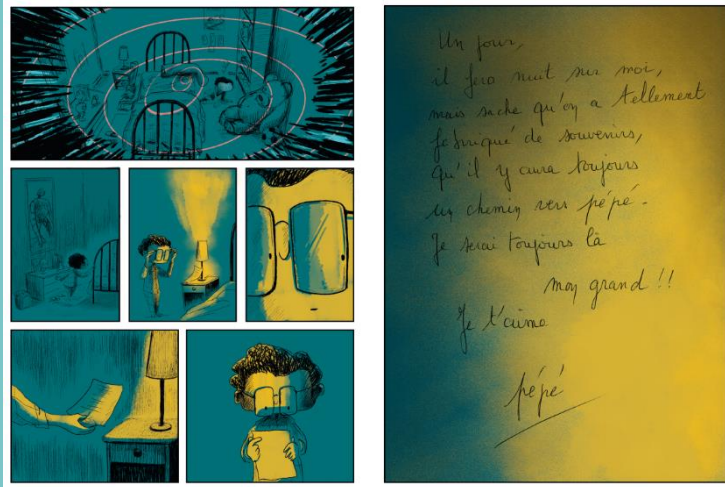 Un jour,
il fera nuit sur moi,
mais sache qu'on a tellement
fabriqué de souvenirs,
qu'il y aura toujours
un chemin vers pépé.
Je serai toujours là
mon grand !!
Je t'aime
pépé